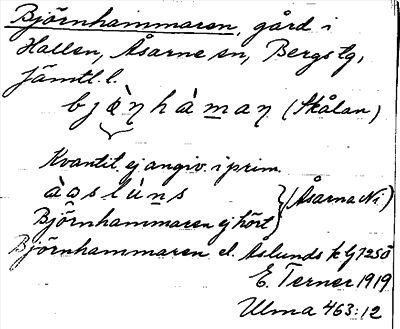 Björnhammaren, gård i
Hallen, Åsarne sn, Bergs tg,
Jämtl. l.
bjὰ̀ŋhàmaŋ (Skålan)
Kvantit. ej angiv. i prim.
àaslùns
Björnhammaren ej hört } (Åsarna Ni)
Björnhammaren el. Aslunds
E. Terner 1919
Ulma 463:12